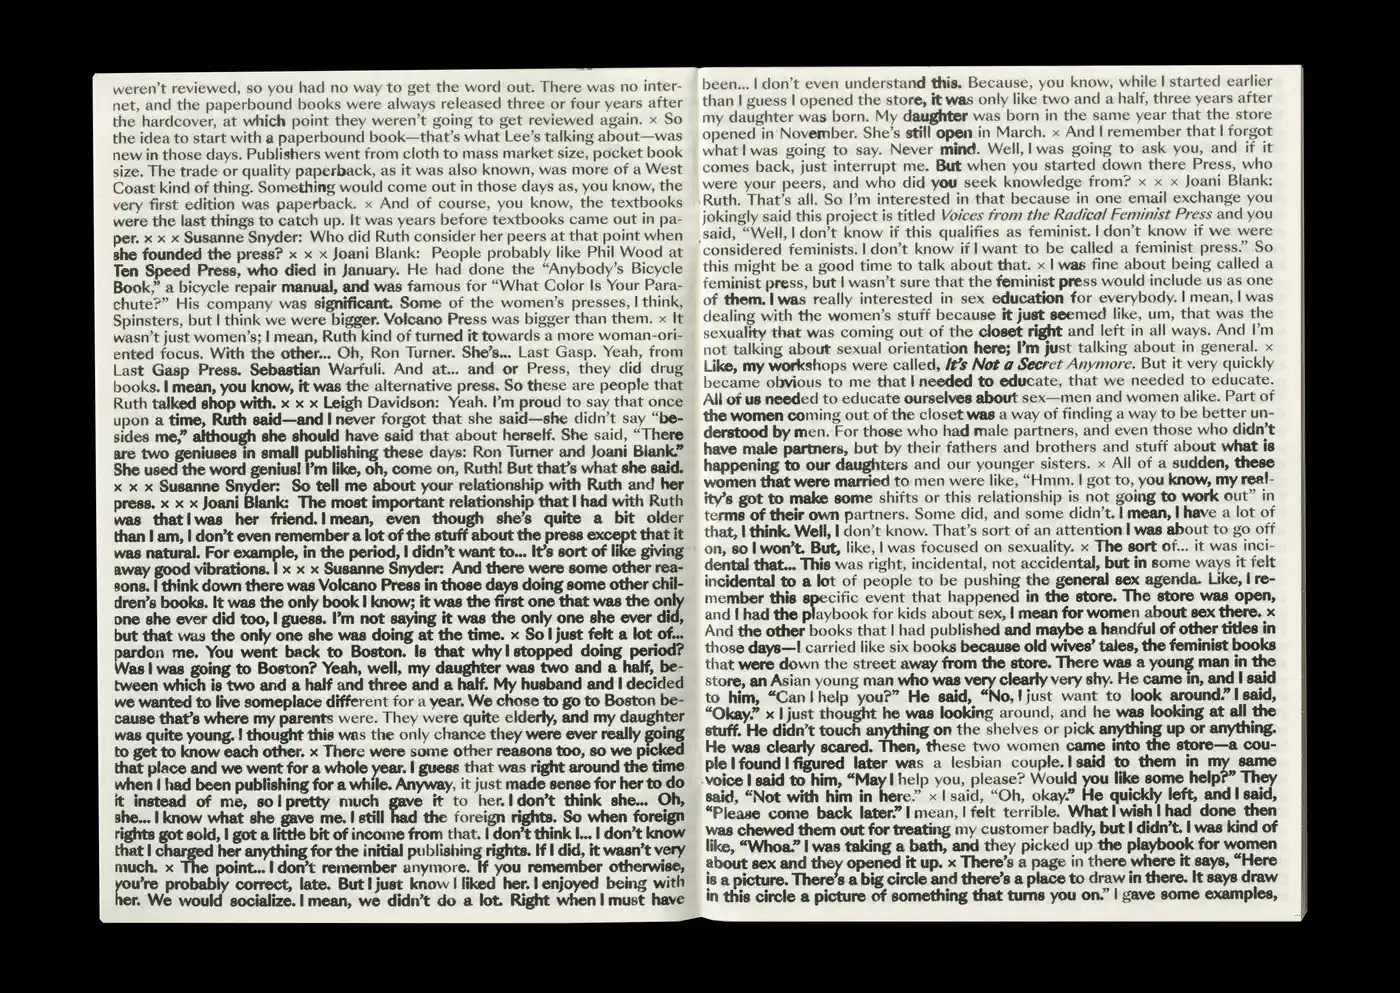 weren't reviewed, so you had no way to get the word out. There was no inter-
net, and the paperbound books were always released three or four years after
the hardcover, at which point they weren't going to get reviewed again. × So
the idea to start with a paperbound book—that's what Lee's talking about—was
new in those days. Publishers went from cloth to mass market size, pocket book
size. The trade or quality paperback, as it was also known, was more of a West
Coast kind of thing. Something would come out in those days as, you know, the
very first edition was paperback. × And of course, you know, the textbooks
were the last things to catch up. It was years before textbooks came out in pa-
per. × × × Susanne Snyder: Who did Ruth consider her peers at that point when
she founded the press? × × × Joani Blank: People probably like Phil Wood at
Ten Speed Press, who died in January. He had done the “Anybody's Bicycle
Book,” a bicycle repair manual, and was famous for “What Color Is Your Para-
chute?” His company was significant. Some of the women's presses, I think,
Spinsters, but I think we were bigger. Volcano Press was bigger than them. × It
wasn't just women's; I mean, Ruth kind of turned it towards a more woman-ori-
ented focus. With the other... Oh, Ron Turner. She's... Last Gasp. Yeah, from
Last Gasp Press. Sebastian Warfuli. And at... and or Press, they did drug
books. I mean, you know, it was the alternative press. So these are people that
Ruth talked shop with. × × × Leigh Davidson: Yeah. I'm proud to say that once
upon a time, Ruth said—and I never forgot that she said—she didn't say “be-
sides me,” although she should have said that about herself. She said, “There
are two geniuses in small publishing these days: Ron Turner and Joani Blank.”
She used the word genius! I'm like, oh, come on, Ruth! But that's what she said.
× × × Susanne Snyder: So tell me about your relationship with Ruth and her
press. × × × Joani Blank: The most important relationship that I had with Ruth
was that I was her friend. I mean, even though she's quite a bit older
than I am, I don't even remember a lot of the stuff about the press except that it
was natural. For example, in the period, I didn't want to... It's sort of like giving
away good vibrations. I × × × Susanne Snyder: And there were some other rea-
sons. I think down there was Volcano Press in those days doing some other chil-
dren's books. It was the only book I know; it was the first one that was the only
one she ever did too, I guess. I'm not saying it was the only one she ever did,
but that was the only one she was doing at the time. × So I just felt a lot of...
pardon me. You went back to Boston. Is that why I stopped doing period?
Was I was going to Boston? Yeah, well, my daughter was two and a half, be-
tween which is two and a half and three and a half. My husband and I decided
we wanted to live someplace different for a year. We chose to go to Boston be-
cause that's where my parents were. They were quite elderly, and my daughter
was quite young. I thought this was the only chance they were ever really going
to get to know each other. × There were some other reasons too, so we picked
that place and we went for a whole year. I guess that was right around the time
when I had been publishing for a while. Anyway, it just made sense for her to do
it instead of me, so I pretty much gave it to her. I don't think she... Oh,
she... I know what she gave me. I still had the foreign rights. So when foreign
rights got sold, I got a little bit of income from that. I don't think I... I don't know
that I charged her anything for the initial publishing rights. If I did, it wasn't very
much. × The point... I don't remember anymore. If you remember otherwise,
you're probably correct, late. But I just know I liked her. I enjoyed being with
her. We would socialize. I mean, we didn't do a lot. Right when I must have
been... I don't even understand this. Because, you know, while I started earlier
than I guess I opened the store, it was only like two and a half, three years after
my daughter was born. My daughter was born in the same year that the store
opened in November. She's still open in March. × And I remember that I forgot
what I was going to say. Never mind. Well, I was going to ask you, and if it
comes back, just interrupt me. But when you started down there Press, who
were your peers, and who did you seek knowledge from? × × × Joani Blank:
Ruth. That's all. So I'm interested in that because in one email exchange you
jokingly said this project is titled Voices from the Radical Feminist Press and you
said, “Well, I don't know if this qualifies as feminist. I don't know if we were
considered feminists. I don't know if I want to be called a feminist press.” So
this might be a good time to talk about that. × I was fine about being called a
feminist press, but I wasn't sure that the feminist press would include us as one
of them. I was really interested in sex education for everybody. I mean, I was
dealing with the women's stuff because it just seemed like, um, that was the
sexuality that was coming out of the closet right and left in all ways. And I'm
not talking about sexual orientation here; I'm just talking about in general. ×
Like, my workshops were called, It's Not a Secret Anymore. But it very quickly
became obvious to me that I needed to educate, that we needed to educate.
All of us needed to educate ourselves about sex—men and women alike. Part of
the women coming out of the closet was a way of finding a way to be better un-
derstood by men. For those who had male partners, and even those who didn't
have male partners, but by their fathers and brothers and stuff about what is
happening to our daughters and our younger sisters. × All of a sudden, these
women that were married to men were like, “Hmm. I got to, you know, my real-
ity's got to make some shifts or this relationship is not going to work out” in
terms of their own partners. Some did, and some didn't. I mean, I have a lot of
that, I think. Well, I don't know. That's sort of an attention I was about to go off
on, so I won't. But, like, I was focused on sexuality. × The sort of... it was inci-
dental that... This was right, incidental, not accidental, but in some ways it felt
incidental to a lot of people to be pushing the general sex agenda. Like, I re-
member this specific event that happened in the store. The store was open,
and I had the playbook for kids about sex, I mean for women about sex there. ×
And the other books that I had published and maybe a handful of other titles in
those days—I carried like six books because old wives' tales, the feminist books
that were down the street away from the store. There was a young man in the
store, an Asian young man who was very clearly very shy. He came in, and I said
to him, “Can I help you?” He said, “No, I just want to look around.” I said,
“Okay.” × I just thought he was looking around, and he was looking at all the
stuff. He didn't touch anything on the shelves or pick anything up or anything.
He was clearly scared. Then, these two women came into the store—a cou-
ple I found I figured later was a lesbian couple. I said to them in my same
voice I said to him, “May I help you, please? Would you like some help?” They
said, “Not with him in here.” × I said, “Oh, okay.” He quickly left, and I said,
“Please come back later.” I mean, I felt terrible. What I wish I had done then
was chewed them out for treating my customer badly, but I didn't. I was kind of
like, “Whoa.” I was taking a bath, and they picked up the playbook for women
about sex and they opened it up. × There's a page in there where it says, “Here
is a picture. There's a big circle and there's a place to draw in there. It says draw
in this circle a picture of something that turns you on.” I gave some examples,